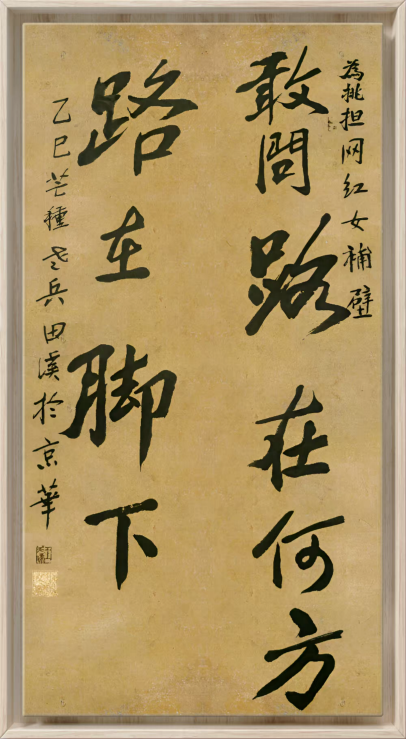 為挑担网红女補壁
敢問路在何方
路在脚下
乙巳芒種老兵田漢於京華